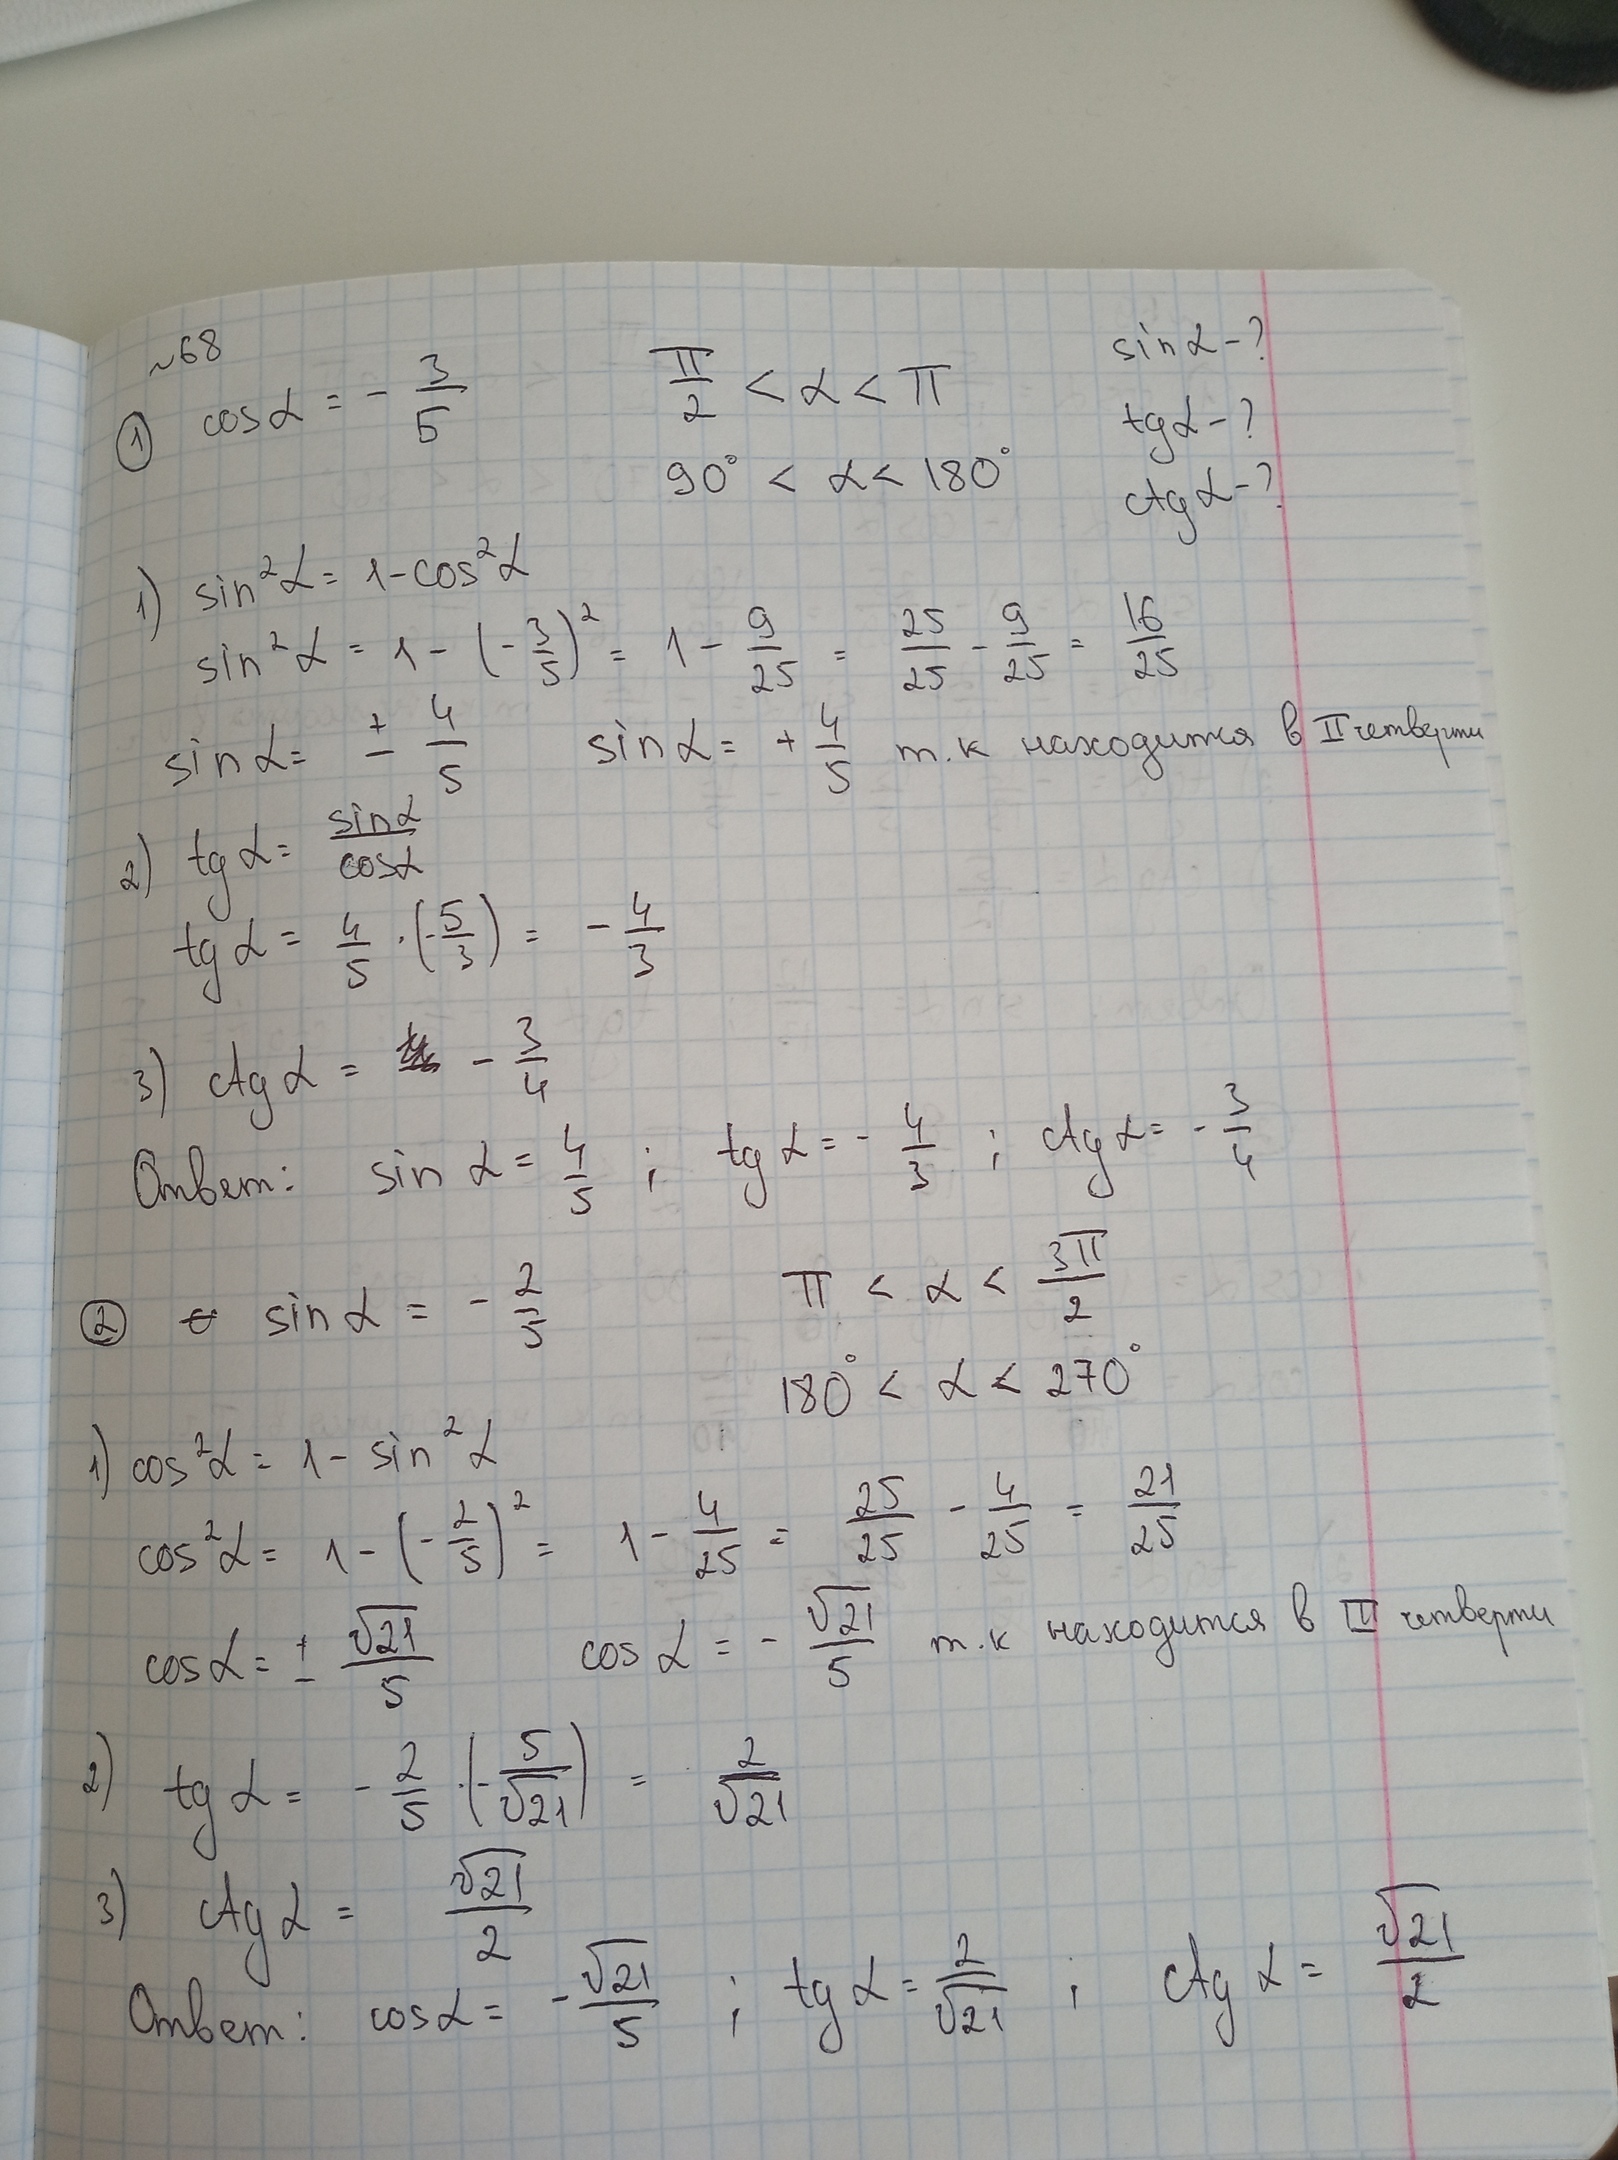 ~68
① cosα = - 3/5   π/2 < α < π   sinα - ?
tgα - ?
90° < α < 180°   ctgα - ?
1) sin²α = 1 - cos²α
sin²α = 1 - (-3/5)² = 1 - 9/25 = 25/25 - 9/25 = 16/25
sinα = ± 4/5   sinα = + 4/5 т.к находится в II четверти
2) tgα = sinα/cosα
tgα = 4/5 · (-5/3) = - 4/3
3) ctgα = - 3/4
Ответ: sinα = 4/5 ; tgα = - 4/3 ; ctgα = - 3/4
② sinα = - 2/5   π < α < 3π/2
180° < α < 270°
1) cos²α = 1 - sin²α
cos²α = 1 - (-2/5)² = 1 - 4/25 = 25/25 - 4/25 = 21/25
cosα = ± √21/5   cosα = - √21/5 т.к находится в III четверти
2) tgα = - 2/5 · (-5/√21) = 2/√21
3) ctgα = √21/2
Ответ: cosα = - √21/5 ; tgα = 2/√21 ; ctgα = √21/2